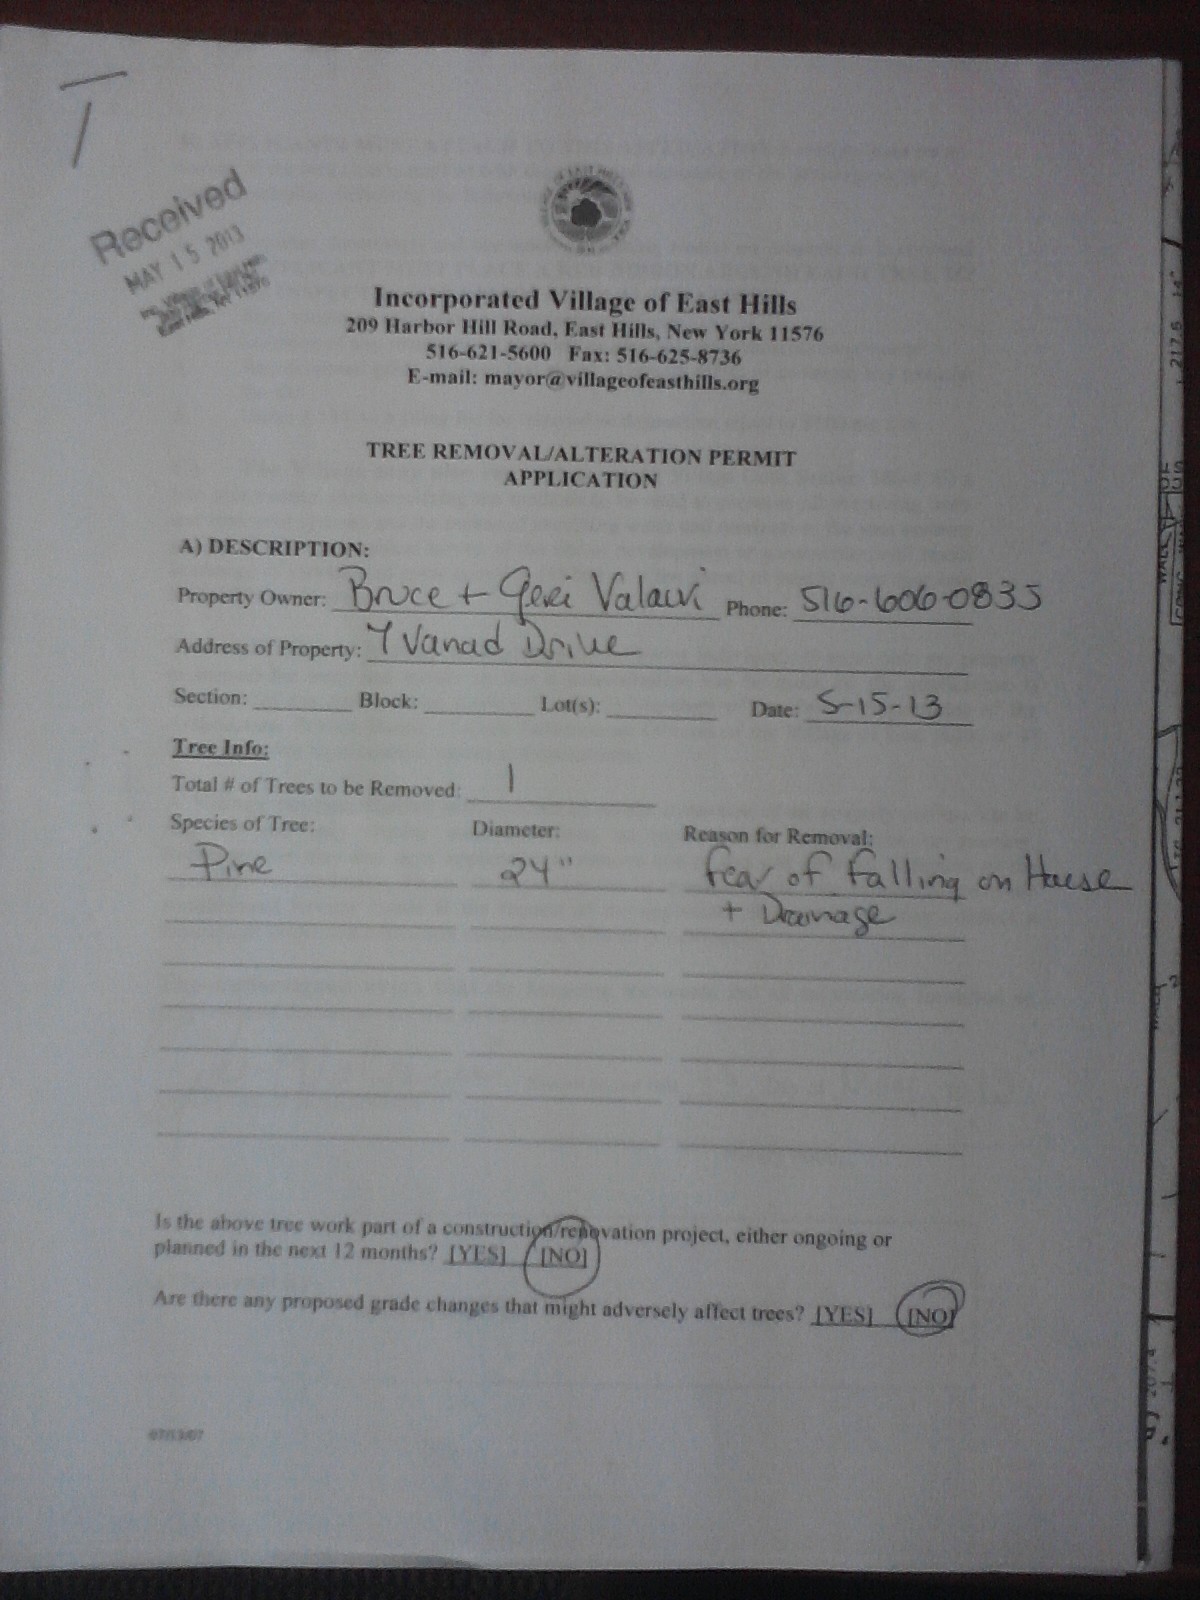 Received
MAY 15 2013
Incorporated Village of East Hills
209 Harbor Hill Road, East Hills, New York 11576
516-621-5600 Fax: 516-625-8736
E-mail: mayor@villageofeasthills.org
TREE REMOVAL/ALTERATION PERMIT
APPLICATION
A) DESCRIPTION:
Property Owner: Bruce + Geri Phone: 516-606-0835
Address of Property: 7 Vanad Drive
Section: Block: Lot(s): Date: 5-15-13
Tree Info:
Total # of Trees to be Removed: 1
Species of Tree: Diameter: Reason for Removal:
Pine 24" fear of falling on House
+ Drainage
Is the above tree work part of a construction/renovation project, either ongoing or
planned in the next 12 months? [YES] [NO]
Are there any proposed grade changes that might adversely affect trees? [YES] [NO]